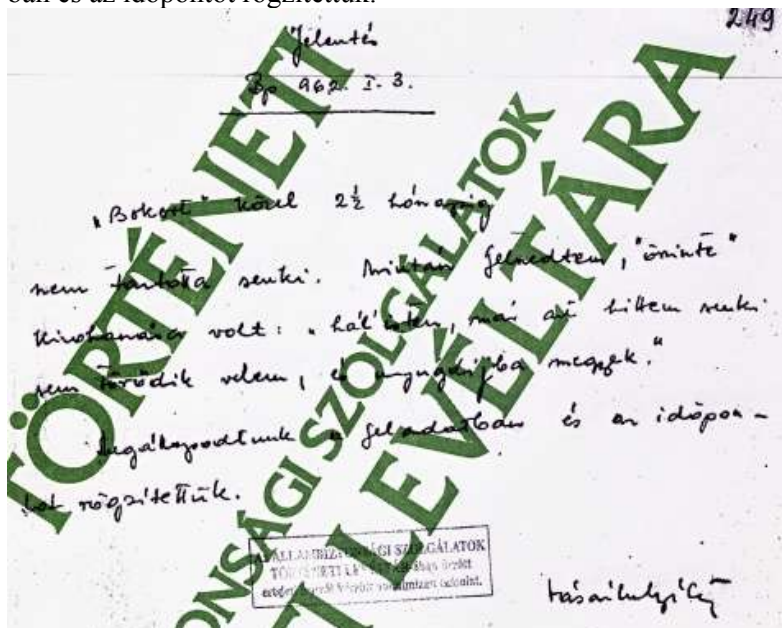 ban és az időpontot rögzítettük.
249
Jelentés
Bp 962. I. 3.
„Bokort” közel 2½ hónapig
nem tartotta senki. Miután felvettem, "őszinte"
kirohanása volt: „hál’isten, már azt hittem senki
sem törődik velem, és nyugdíjba megyek.”
Megállapodtunk a feladatban és az időpon-
tot rögzítettük.
TÖRTÉNETI
ONSÁGI SZOLGÁLATOK
TI LEVÉLTÁRA
ÁLLAMBIZTONSÁGI SZOLGÁLATOK
TÖRTÉNETI LEVÉLTÁRÁban őrzött